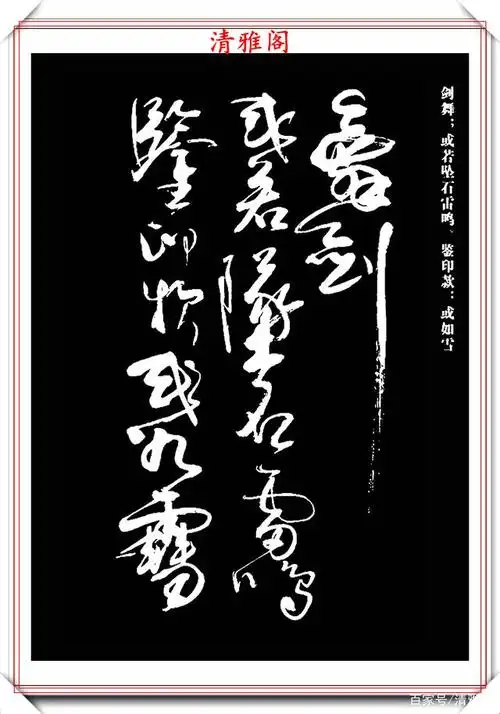 清雅阁
剑舞；或若坠石雷鸣、鉴印款；或如雪
劍
或若墜石雷鸣
鑒印款或如
百家号/清雅